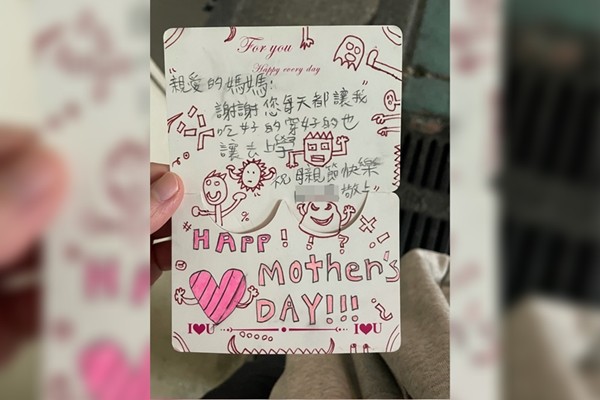 For you
Happy every day
親愛的媽媽:
謝謝您每天都讓我
吃好的穿好的也
讓去上學
祝母親節快樂
敬上
%
HAPP! ! ?
Mother's
DAY!!!
I♥U I♥U